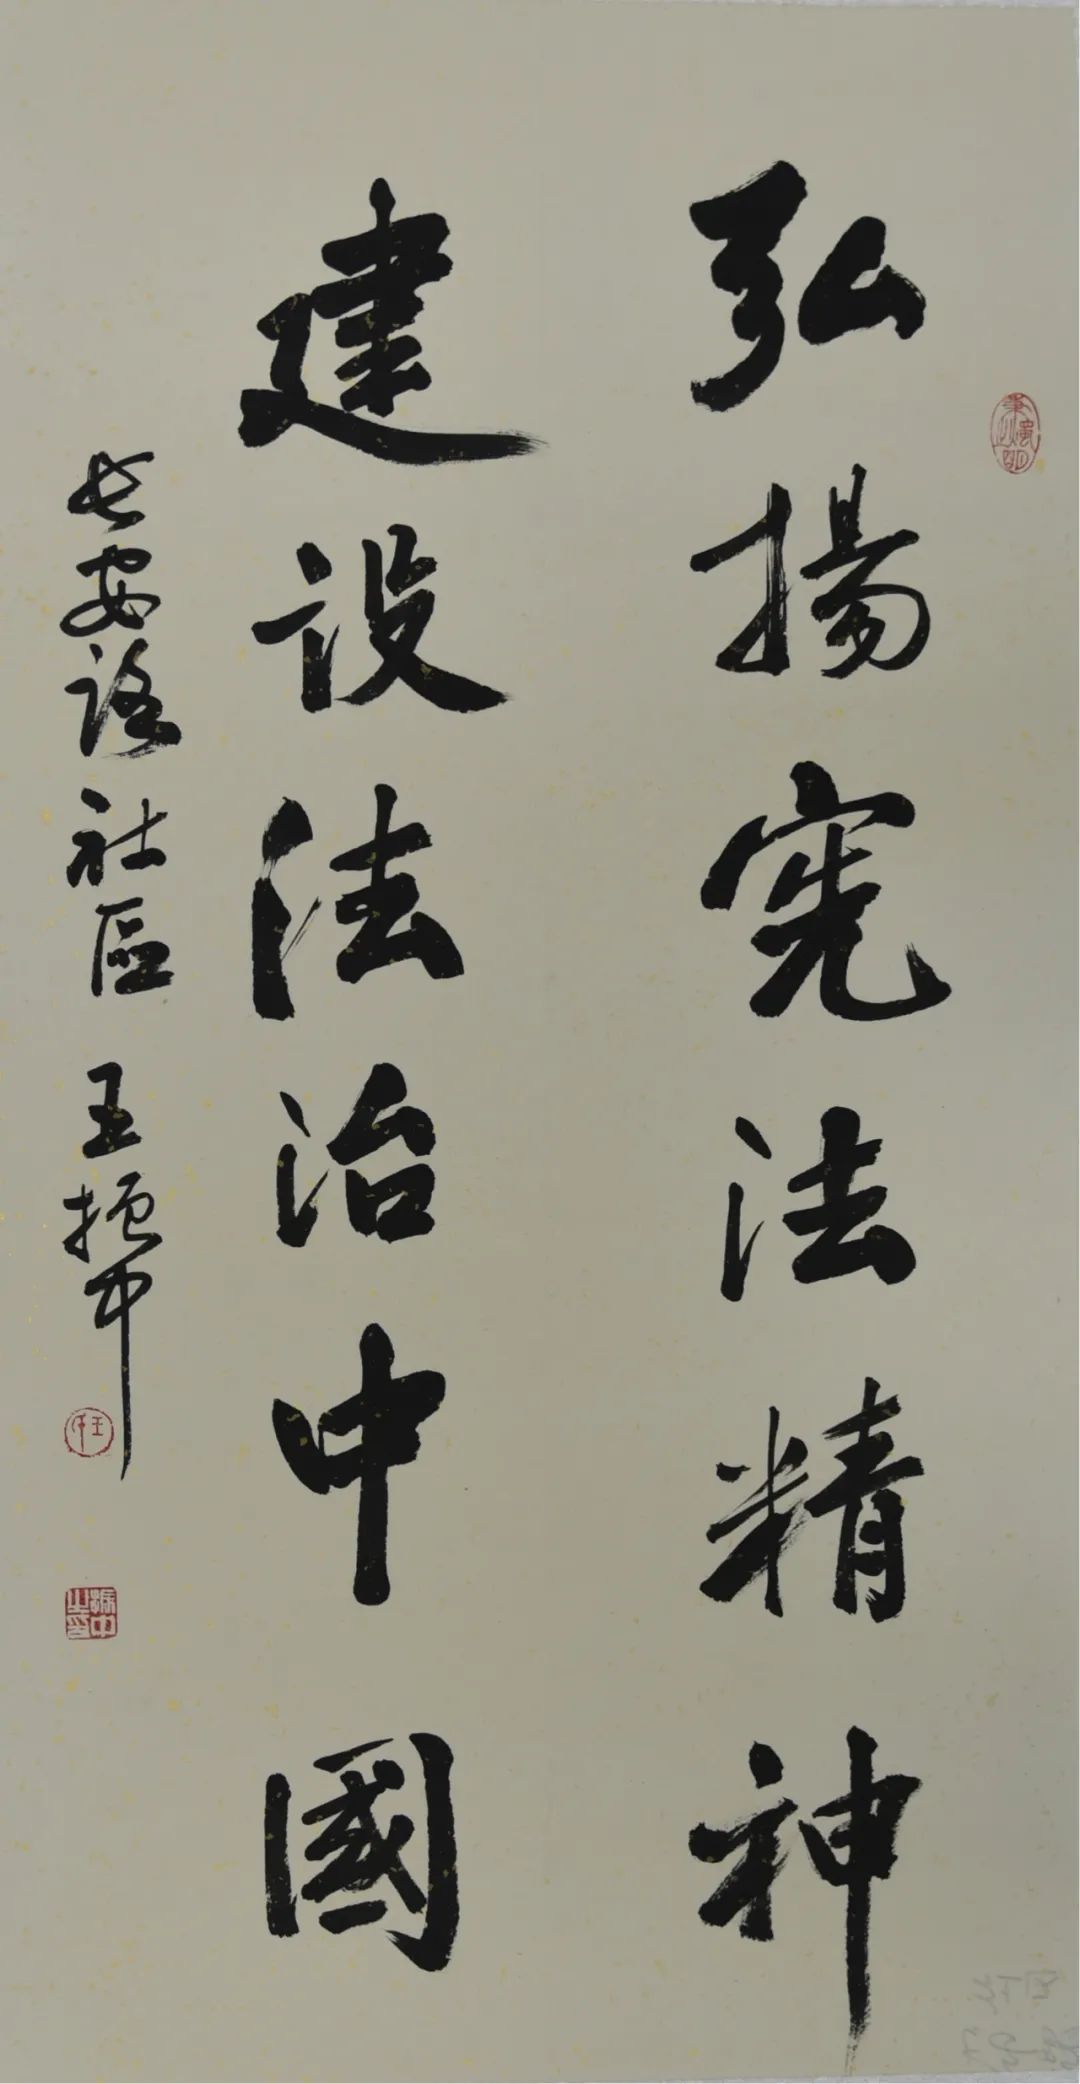 弘揚憲法精神
建设法治中國
长安路社區 王振中